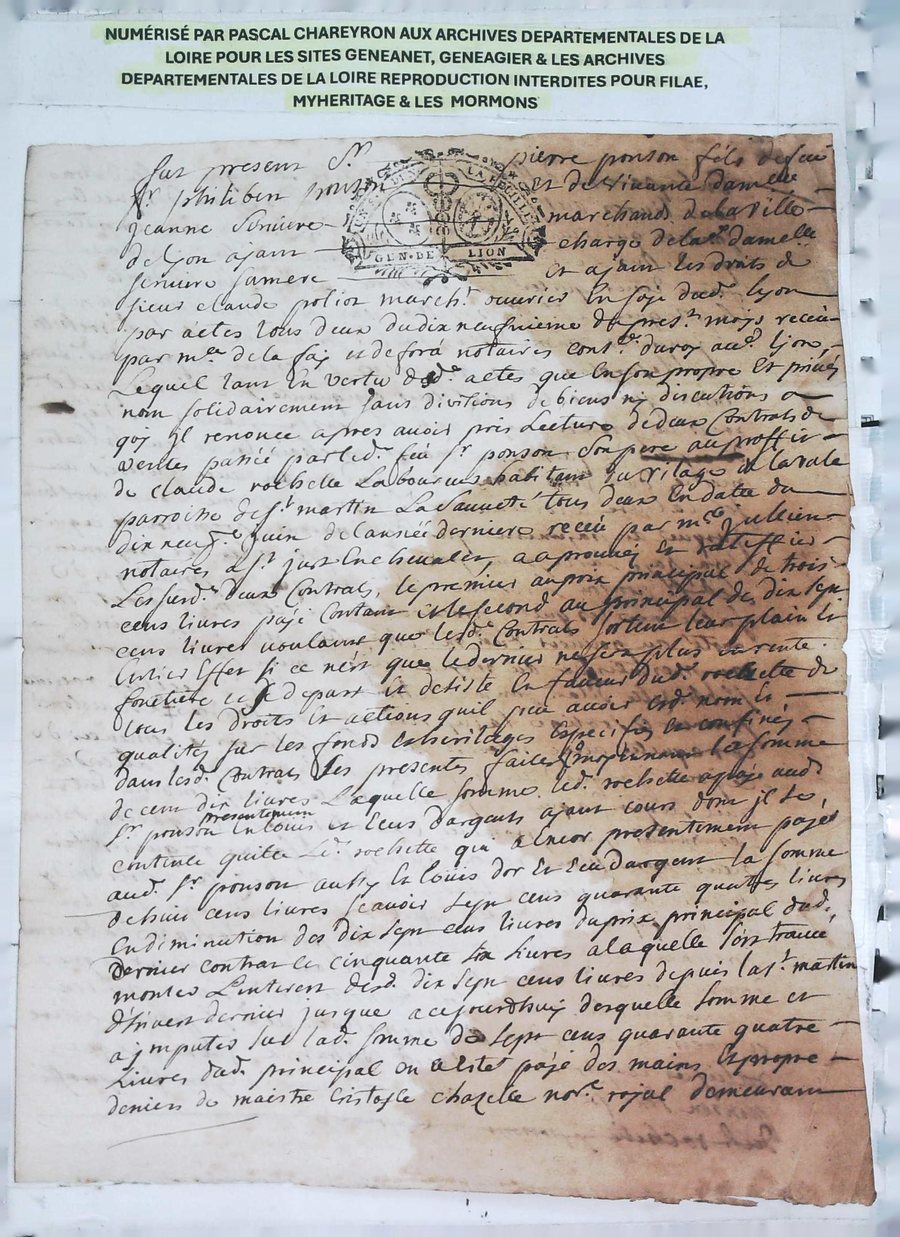 NUMÉRISÉ PAR PASCAL CHAREYRON AUX ARCHIVES DEPARTEMENTALES DE LA
LOIRE POUR LES SITES GENEANET, GENEAGIER & LES ARCHIVES
DEPARTEMENTALES DE LA LOIRE REPRODUCTION INTERDITES POUR FILAE,
MYHERITAGE & LES MORMONS
fut present Sr pierre ponson fils de feu
Sr philibert ponson et de vivante damelle
jeanne Seriziere marchands de la ville
de lyon ajant charge de la de damelle
sa mere et ajant les droits de
GEN. DE LION
sieur claude poliot marcht ouvrier en soje dud. lyon
par actes tous deux du dix neufvieme du prest mois receu
par me de la faj et de fora notaires cons. du roy aud. lyon
Lequel tant en vertu desd. actes que en son propre et privé
nom solidairement sans divitions de biens nj discutions a
quoj jl renonce apres avoir pris Lecture de deux Contrats de
ventes passé par led. feu Sr ponson son pere au proffit
de claude rochette Laboureur habitant du vilage de lavale
parroisse de st martin La Sauveté tous deux en datte du
dix neuf juin de l'année derniere receu par me jullien
notaire a st just en chevalet, a aprouvé et ratiffié
Les susd. deux Contrats, le premier au prix principal de trois
cens livres pajé contant et le second au principal de dix sept
cens livres voulant que lesd. Contrats sortent leur plain et
entier effet si ce n'est que le dernier ne sera plus en rente
fonciere et se depart et desiste en faveur dud. rochette de
tous les droits et actions quil peu avoir esd. nom et
qualités sur les fonds et heritages especifiés et confinés
dans lesd. Contrats les presentes faites moyennant la somme
de cent dix livres Laquelle somme led. rochette a pajé aud.
presentement
Sr ponson en louis et ecus d'argents ajant cours dont jl se
contente quitte led. rochette qui a encor presentement pajé
aud. Sr ponson aussy en louis d'or et ecu d'argent la somme
de huit cens livres scavoir sept cens quarante quatre livres
en diminution des dix sept cens livres du prix principal dud.
dernier contrat et cinquante six livres a laquelle s'est trouvé
monter L'interest desd. dix sept cens livres depuis la st martin
d'hivert dernier jusque a cejourdhuy desquelle somme et
a jmputer sur lad. somme de sept cens quarante quatre
Livres dud. principal en a esté pajé des mains et propre
deniers de maistre cristofle chazelle nore royal demeurant